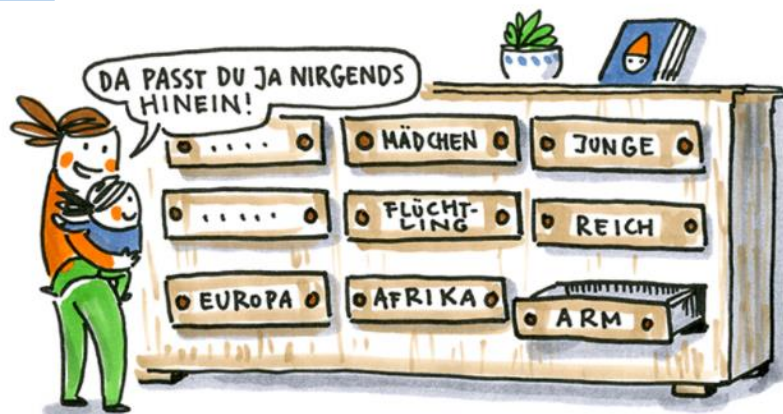 DA PASST DU JA NIRGENDS
HINEIN!
.... MÄDCHEN JUNGE
..... FLÜCHT-
LING
REICH
EUROPA AFRIKA ARM